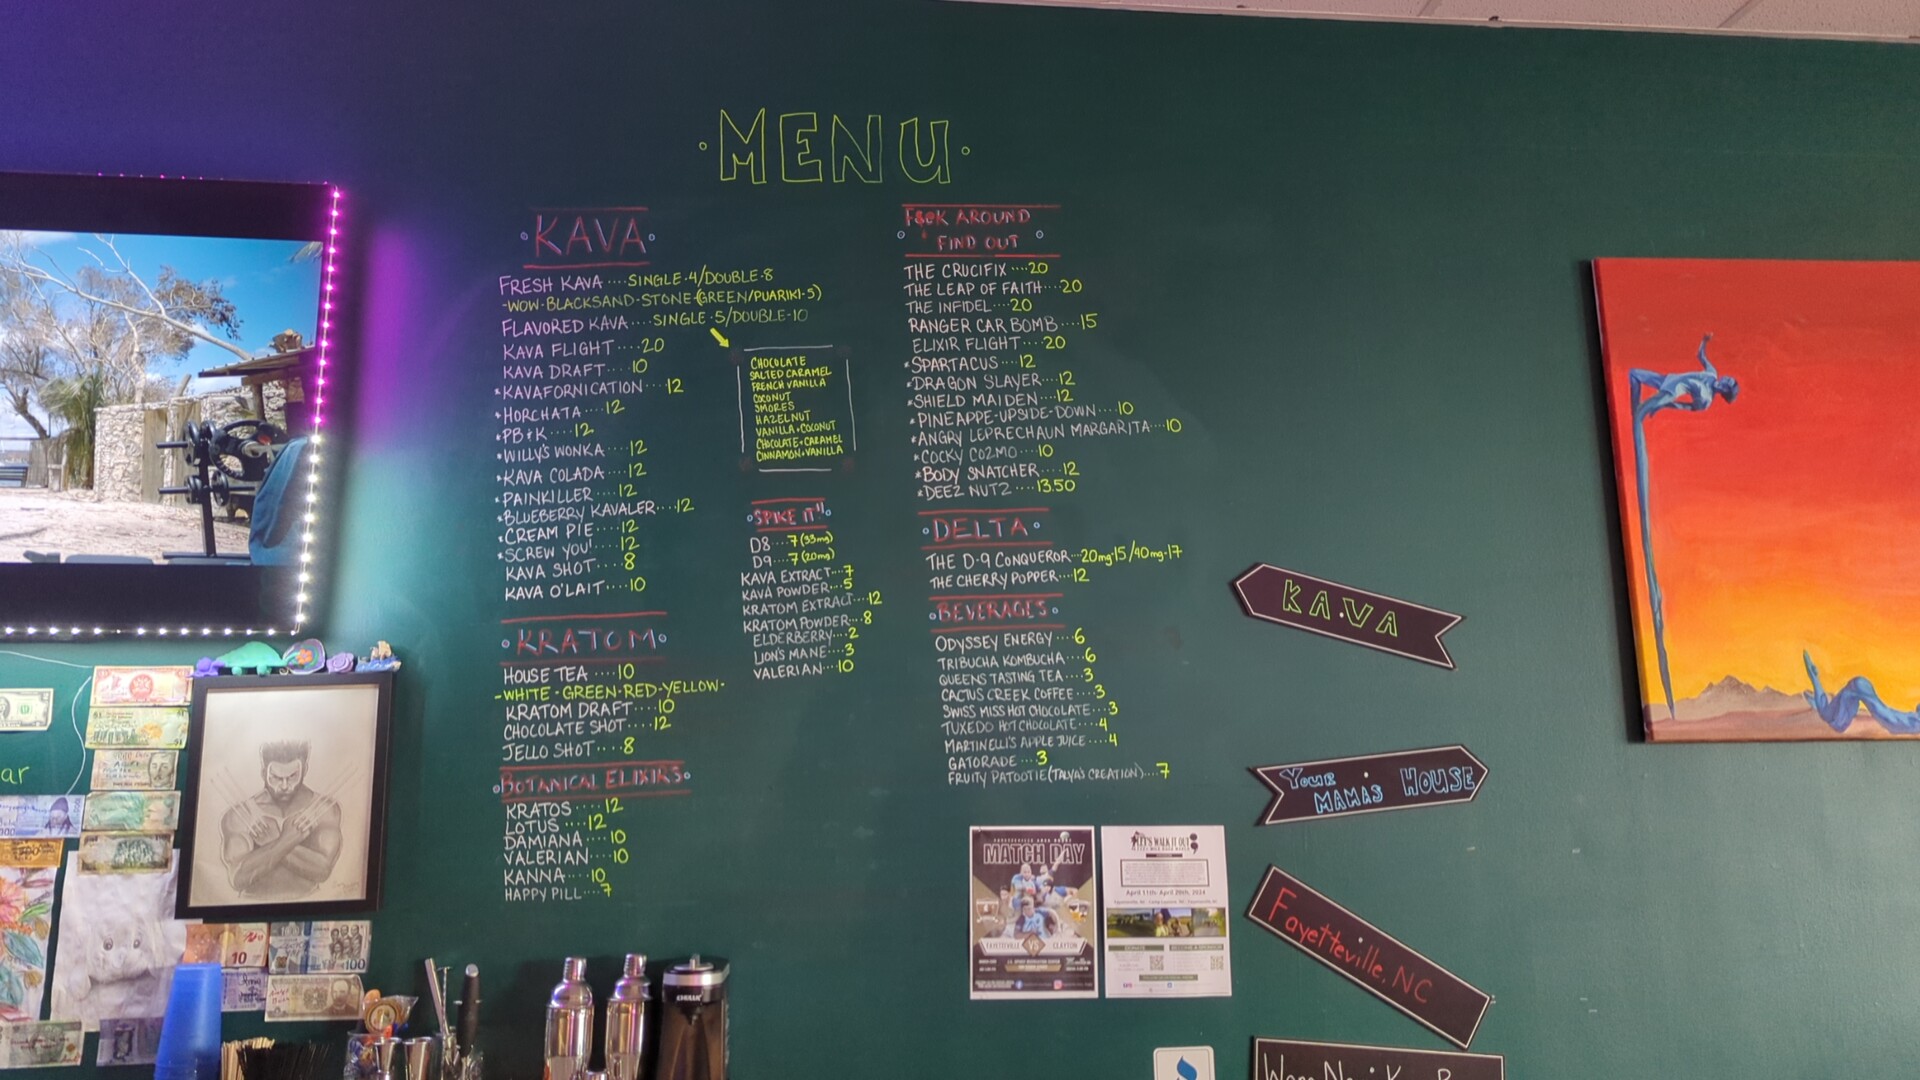 ·MENU·
·KAVA·
FRESH KAVA ···· SINGLE·4/DOUBLE·8
-WOW·BLACKSAND·STONE·(GREEN/PUARIKI·5)
FLAVORED KAVA ···· SINGLE·5/DOUBLE·10
KAVA FLIGHT ···· 20
KAVA DRAFT ···· 10
*KAVAFORNICATION ··· 12
*HORCHATA ···· 12
*PB&K ···· 12
*WILLY'S WONKA ···· 12
*KAVA COLADA ···· 12
*PAINKILLER ···· 12
*BLUEBERRY KAVALER ···· 12
*CREAM PIE ···· 12
*SCREW YOU! ···· 12
KAVA SHOT ···· 8
KAVA O'LAIT ···· 10
CHOCOLATE
SALTED CARAMEL
FRENCH VANILLA
COCONUT
SMORES
HAZELNUT
VANILLA+COCONUT
CHOCOLATE+CARAMEL
CINNAMON+VANILLA
·SPIKE IT"·
D8 ···· 7 (33mg)
D9 ···· 7 (20mg)
KAVA EXTRACT ··· 7
KAVA POWDER ··· 5
KRATOM EXTRACT ··· 12
KRATOM POWDER ··· 8
ELDERBERRY ··· 2
LION'S MANE ··· 3
VALERIAN ···· 10
·KRATOM·
HOUSE TEA ···· 10
-WHITE·GREEN·RED·YELLOW-
KRATOM DRAFT ···· 10
CHOCOLATE SHOT ···· 12
JELLO SHOT ···· 8
·BOTANICAL ELIXIRS·
KRATOS ···· 12
LOTUS ···· 12
DAMIANA ···· 10
VALERIAN ···· 10
KANNA ···· 10
HAPPY PILL ···· 7
F&@K AROUND
· FIND OUT ·
THE CRUCIFIX ···· 20
THE LEAP OF FAITH ··· 20
THE INFIDEL ···· 20
RANGER CAR BOMB ···· 15
ELIXIR FLIGHT ···· 20
*SPARTACUS ···· 12
*DRAGON SLAYER ···· 12
*SHIELD MAIDEN ···· 12
*PINEAPPE-UPSIDE-DOWN ···· 10
*ANGRY LEPRECHAUN MARGARITA ···· 10
*COCKY COZMO ···· 10
*BODY SNATCHER ···· 12
*DEEZ NUTZ ···· 13.50
·DELTA·
THE D-9 CONQUEROR ··· 20mg·15/40mg·17
THE CHERRY POPPER ···· 12
·BEVERAGES·
ODYSSEY ENERGY ···· 6
TRIBUCHA KOMBUCHA ···· 6
QUEENS TASTING TEA ···· 3
CACTUS CREEK COFFEE ···· 3
SWISS MISS HOT CHOCOLATE ···· 3
TUXEDO HOT CHOCOLATE ···· 4
MARTINELLI'S APPLE JUICE ···· 4
GATORADE ···· 3
FRUITY PATOOTIE (TALYA'S CREATION) ···· 7
KAVA
YOUR
MAMA'S HOUSE
Fayetteville, NC
MATCH DAY
FAYETTEVILLE VS CLAYTON
LET'S WALK IT OUT
April 11th- April 20th, 2024
ar
10
100